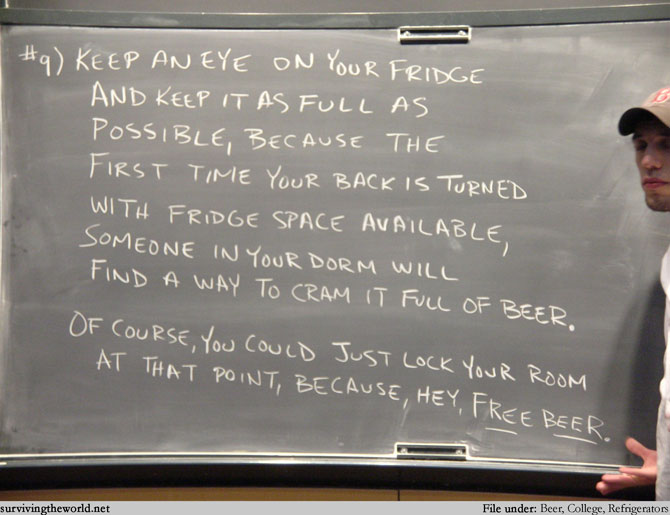 #9) KEEP AN EYE ON YOUR FRIDGE
AND KEEP IT AS FULL AS
POSSIBLE, BECAUSE THE
FIRST TIME YOUR BACK IS TURNED
WITH FRIDGE SPACE AVAILABLE,
SOMEONE IN YOUR DORM WILL
FIND A WAY TO CRAM IT FULL OF BEER.
OF COURSE, YOU COULD JUST LOCK YOUR ROOM
AT THAT POINT, BECAUSE, HEY, FREE BEER.
survivingtheworld.net
File under: Beer, College, Refrigerators